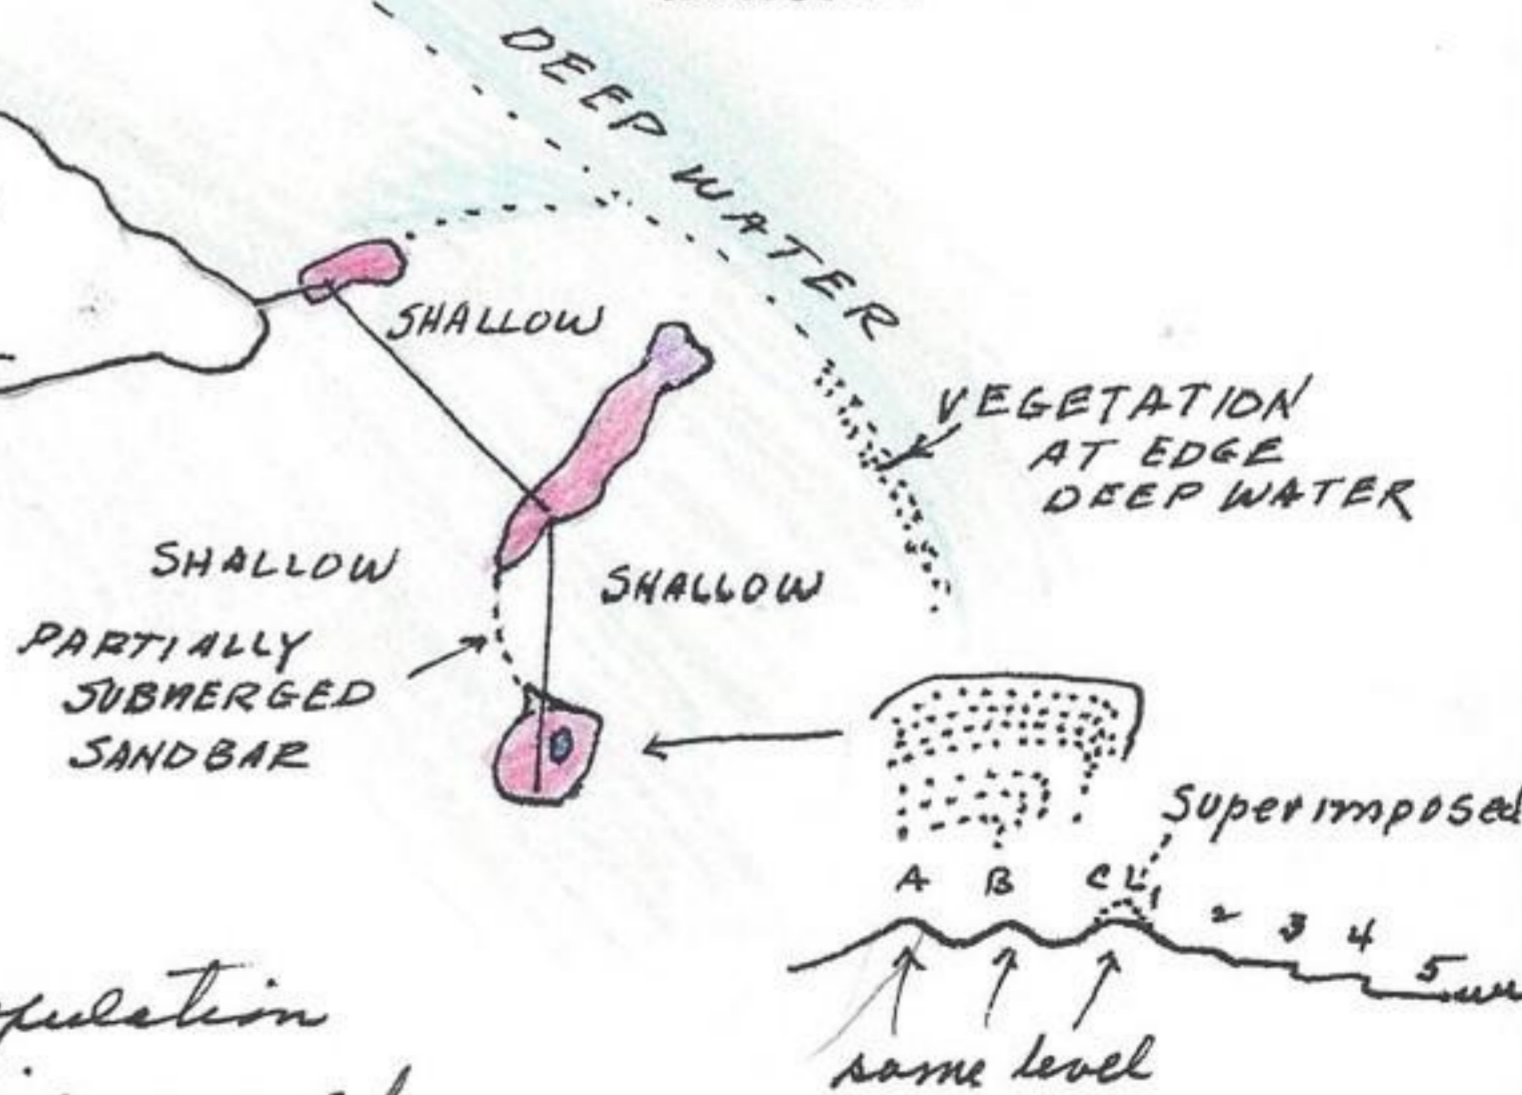 DEEP WATER
SHALLOW
VEGETATION
AT EDGE
DEEP WATER
SHALLOW
SHALLOW
PARTIALLY
SUBMERGED
SANDBAR
Superimposed
A B C L 1 2 3 4 5
same level